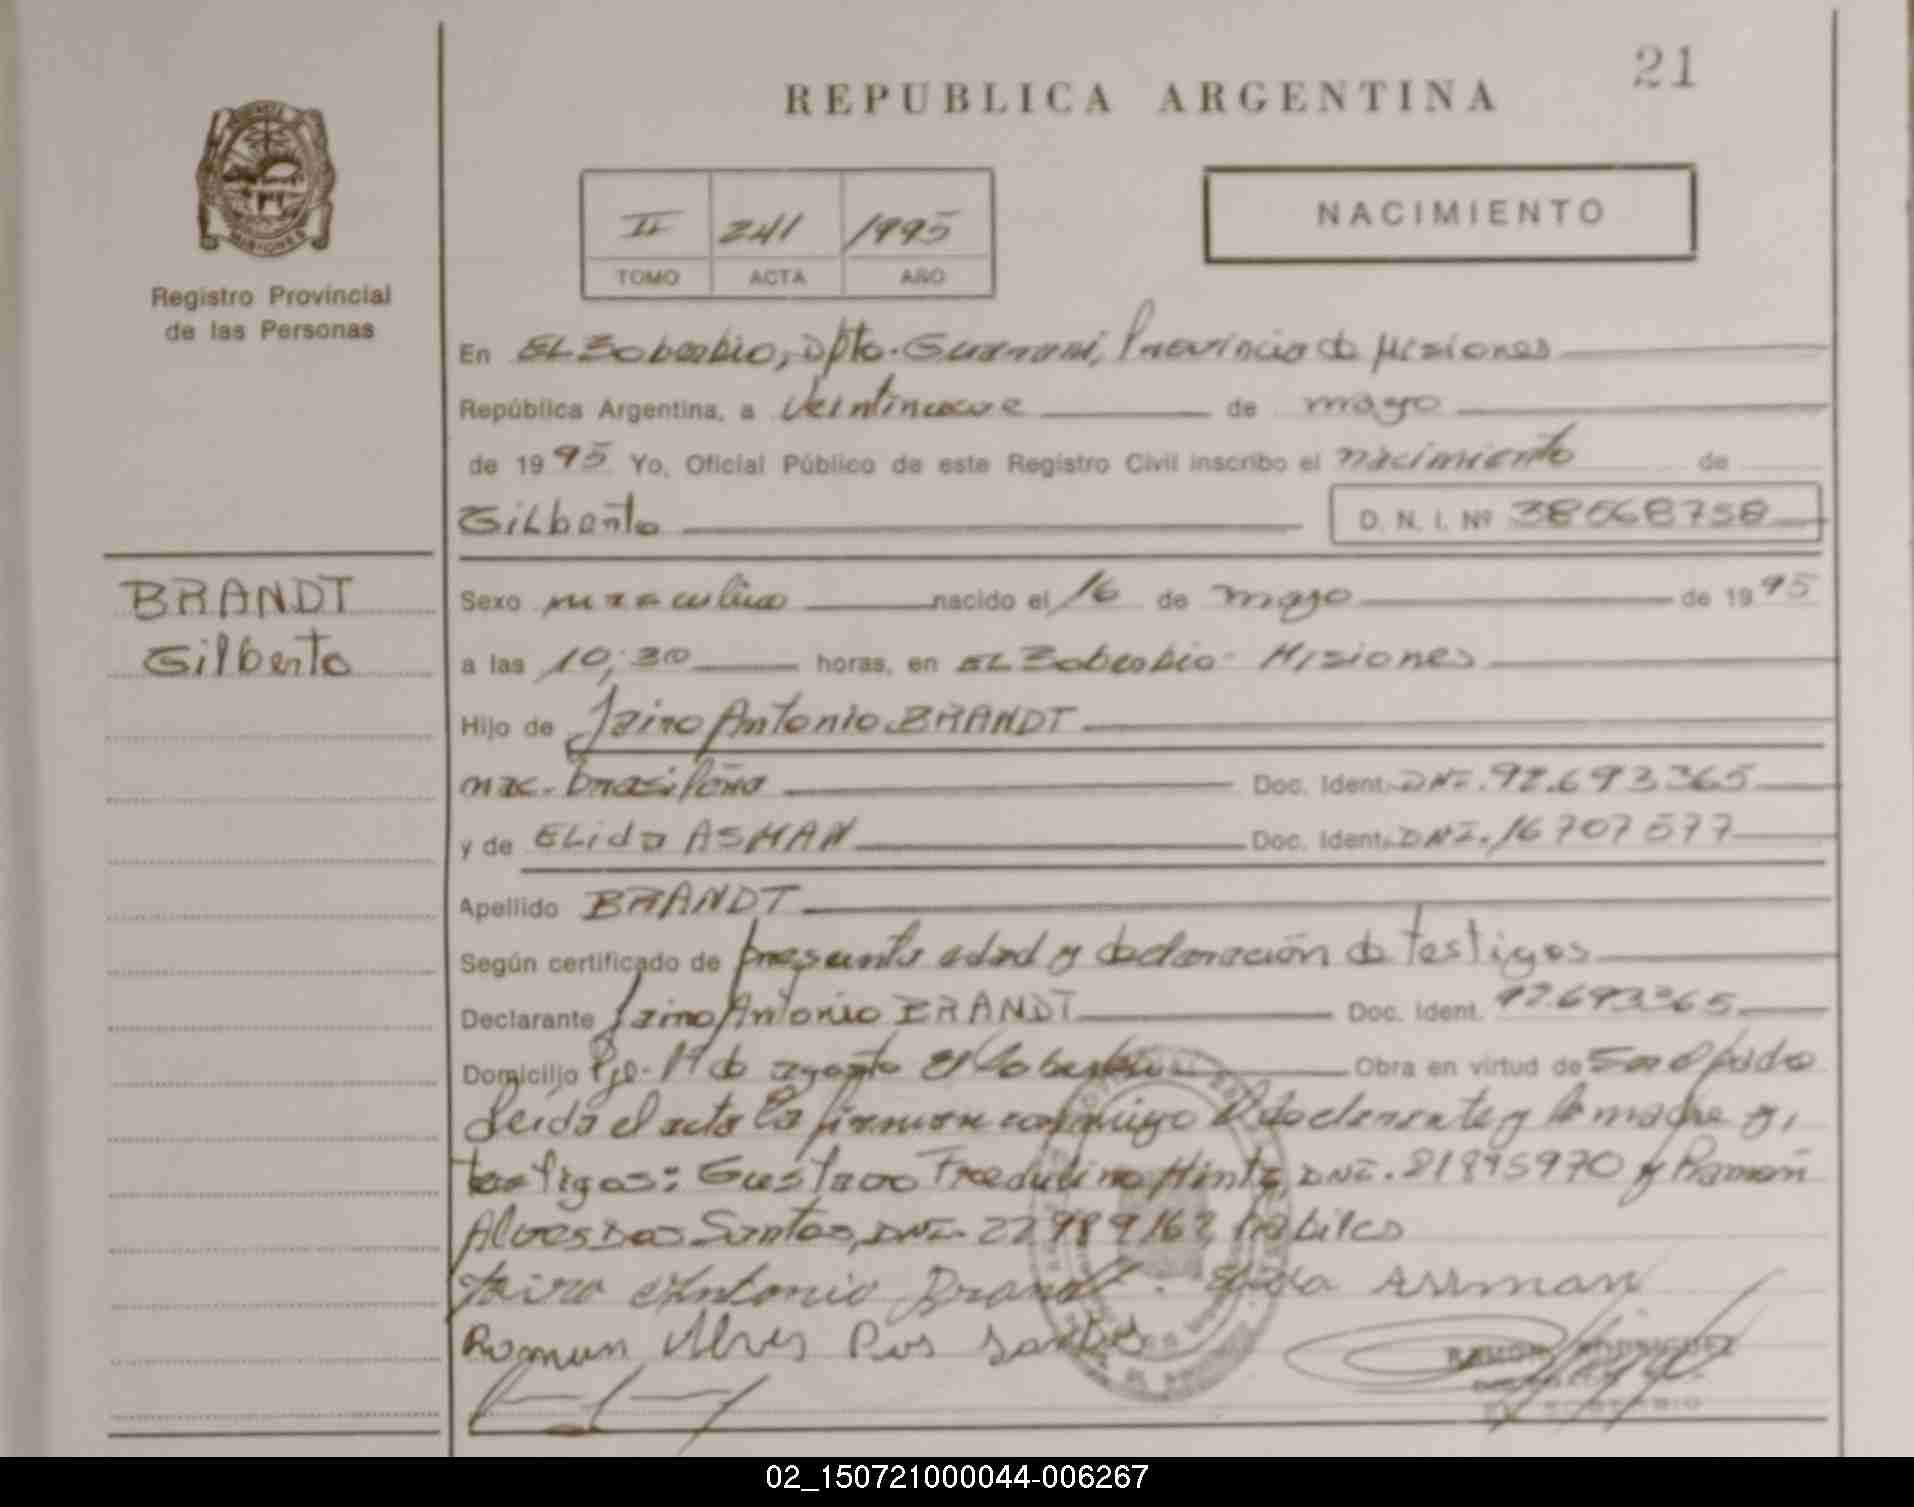 21
REPUBLICA ARGENTINA
NACIMIENTO
II 241 1995
TOMO ACTA AÑO
MISIONES
Registro Provincial
de las Personas
En EL Soberbio, Dpto. Guarani, Provincia de Misiones
República Argentina, a Veintinueve de mayo
de 1995 Yo, Oficial Público de este Registro Civil inscribo el nacimiento de
Gilberto D. N. I. Nº 38568758
BRANDT
Gilberto
Sexo masculino nacido el 16 de mayo de 1995
a las 10,30 horas, en EL Soberbio - Misiones
Hijo de Jairo Antonio BRANDT
nac. brasileña Doc. Ident. DNI. 92.693365
y de ELida ASMAN Doc. Ident. DNI. 16707577
Apellido BRANDT
Según certificado de presunta edad y declaración de testigos
Declarante Jairo Antonio BRANDT Doc. Ident. 92.693365
Domicilio Pje. 17 de agosto El Soberbio Obra en virtud de Ser el padre
Leida el acta la firman conmigo el declarante y la madre y,
testigos: Gustavo Hintz, DNI. 21895970 y Ramón
Alves Dos Santos, DNI. 22989162 habiles
Jairo Antonio Brandt. Elida Assman
Roman Alves Dos Santos
RAMON RODRIGUEZ
02_150721000044-006267